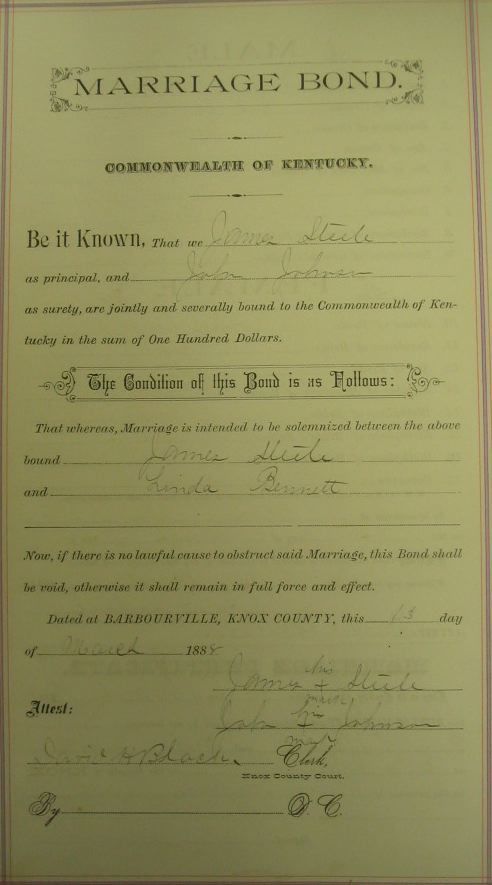 MARRIAGE BOND.
COMMONWEALTH OF KENTUCKY.
Be it Known, That we James Steele
as principal, and John Johnson
as surety, are jointly and severally bound to the Commonwealth of Ken-
tucky in the sum of One Hundred Dollars.
The Condition of this Bond is as Follows:
That whereas, Marriage is intended to be solemnized between the above
bound James Steele
and Linda Bennett
Now, if there is no lawful cause to obstruct said Marriage, this Bond shall
be void, otherwise it shall remain in full force and effect.
Dated at BARBOURVILLE, KNOX COUNTY, this 13 day
of March 1888
his
James + Steele
mark
Attest:
his
John + Johnson
mark
H Black. Clerk,
Knox County Court.
By D. C.